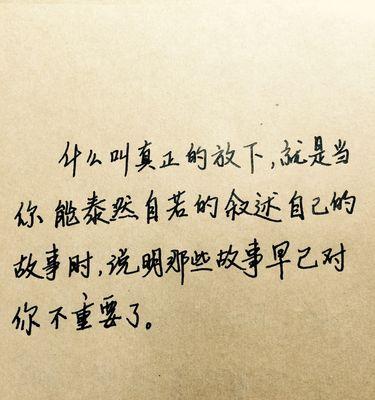 什么叫真正的放下,就是当
你能泰然自若的叙述自己的
故事时,说明那些故事早已对
你不重要了。